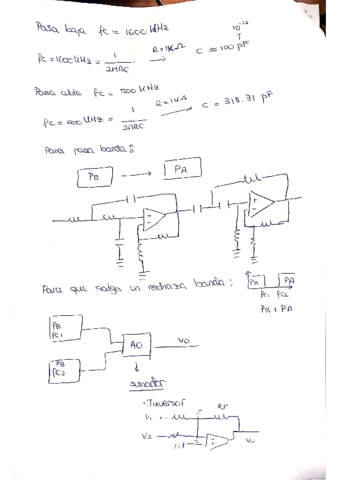 Pasa baja fc = 1600 kHz
10⁻¹²
fc = 1600 kHz = 1/2πRC R = 1kΩ → C ≈ 100 pF
Pasa alta fc = 500 kHz
fc = 500 kHz = 1/2πRC R = 1kΩ → C = 318.31 pF
Para pasa banda:
PB → PA
+
-
+
-
Para que salga un rechaza banda:
PA
fc1 fc2
PB
fc1
AO
VO
PB
fc2
sumador
· Inversor
V1
Rf
V2
+
-
VO